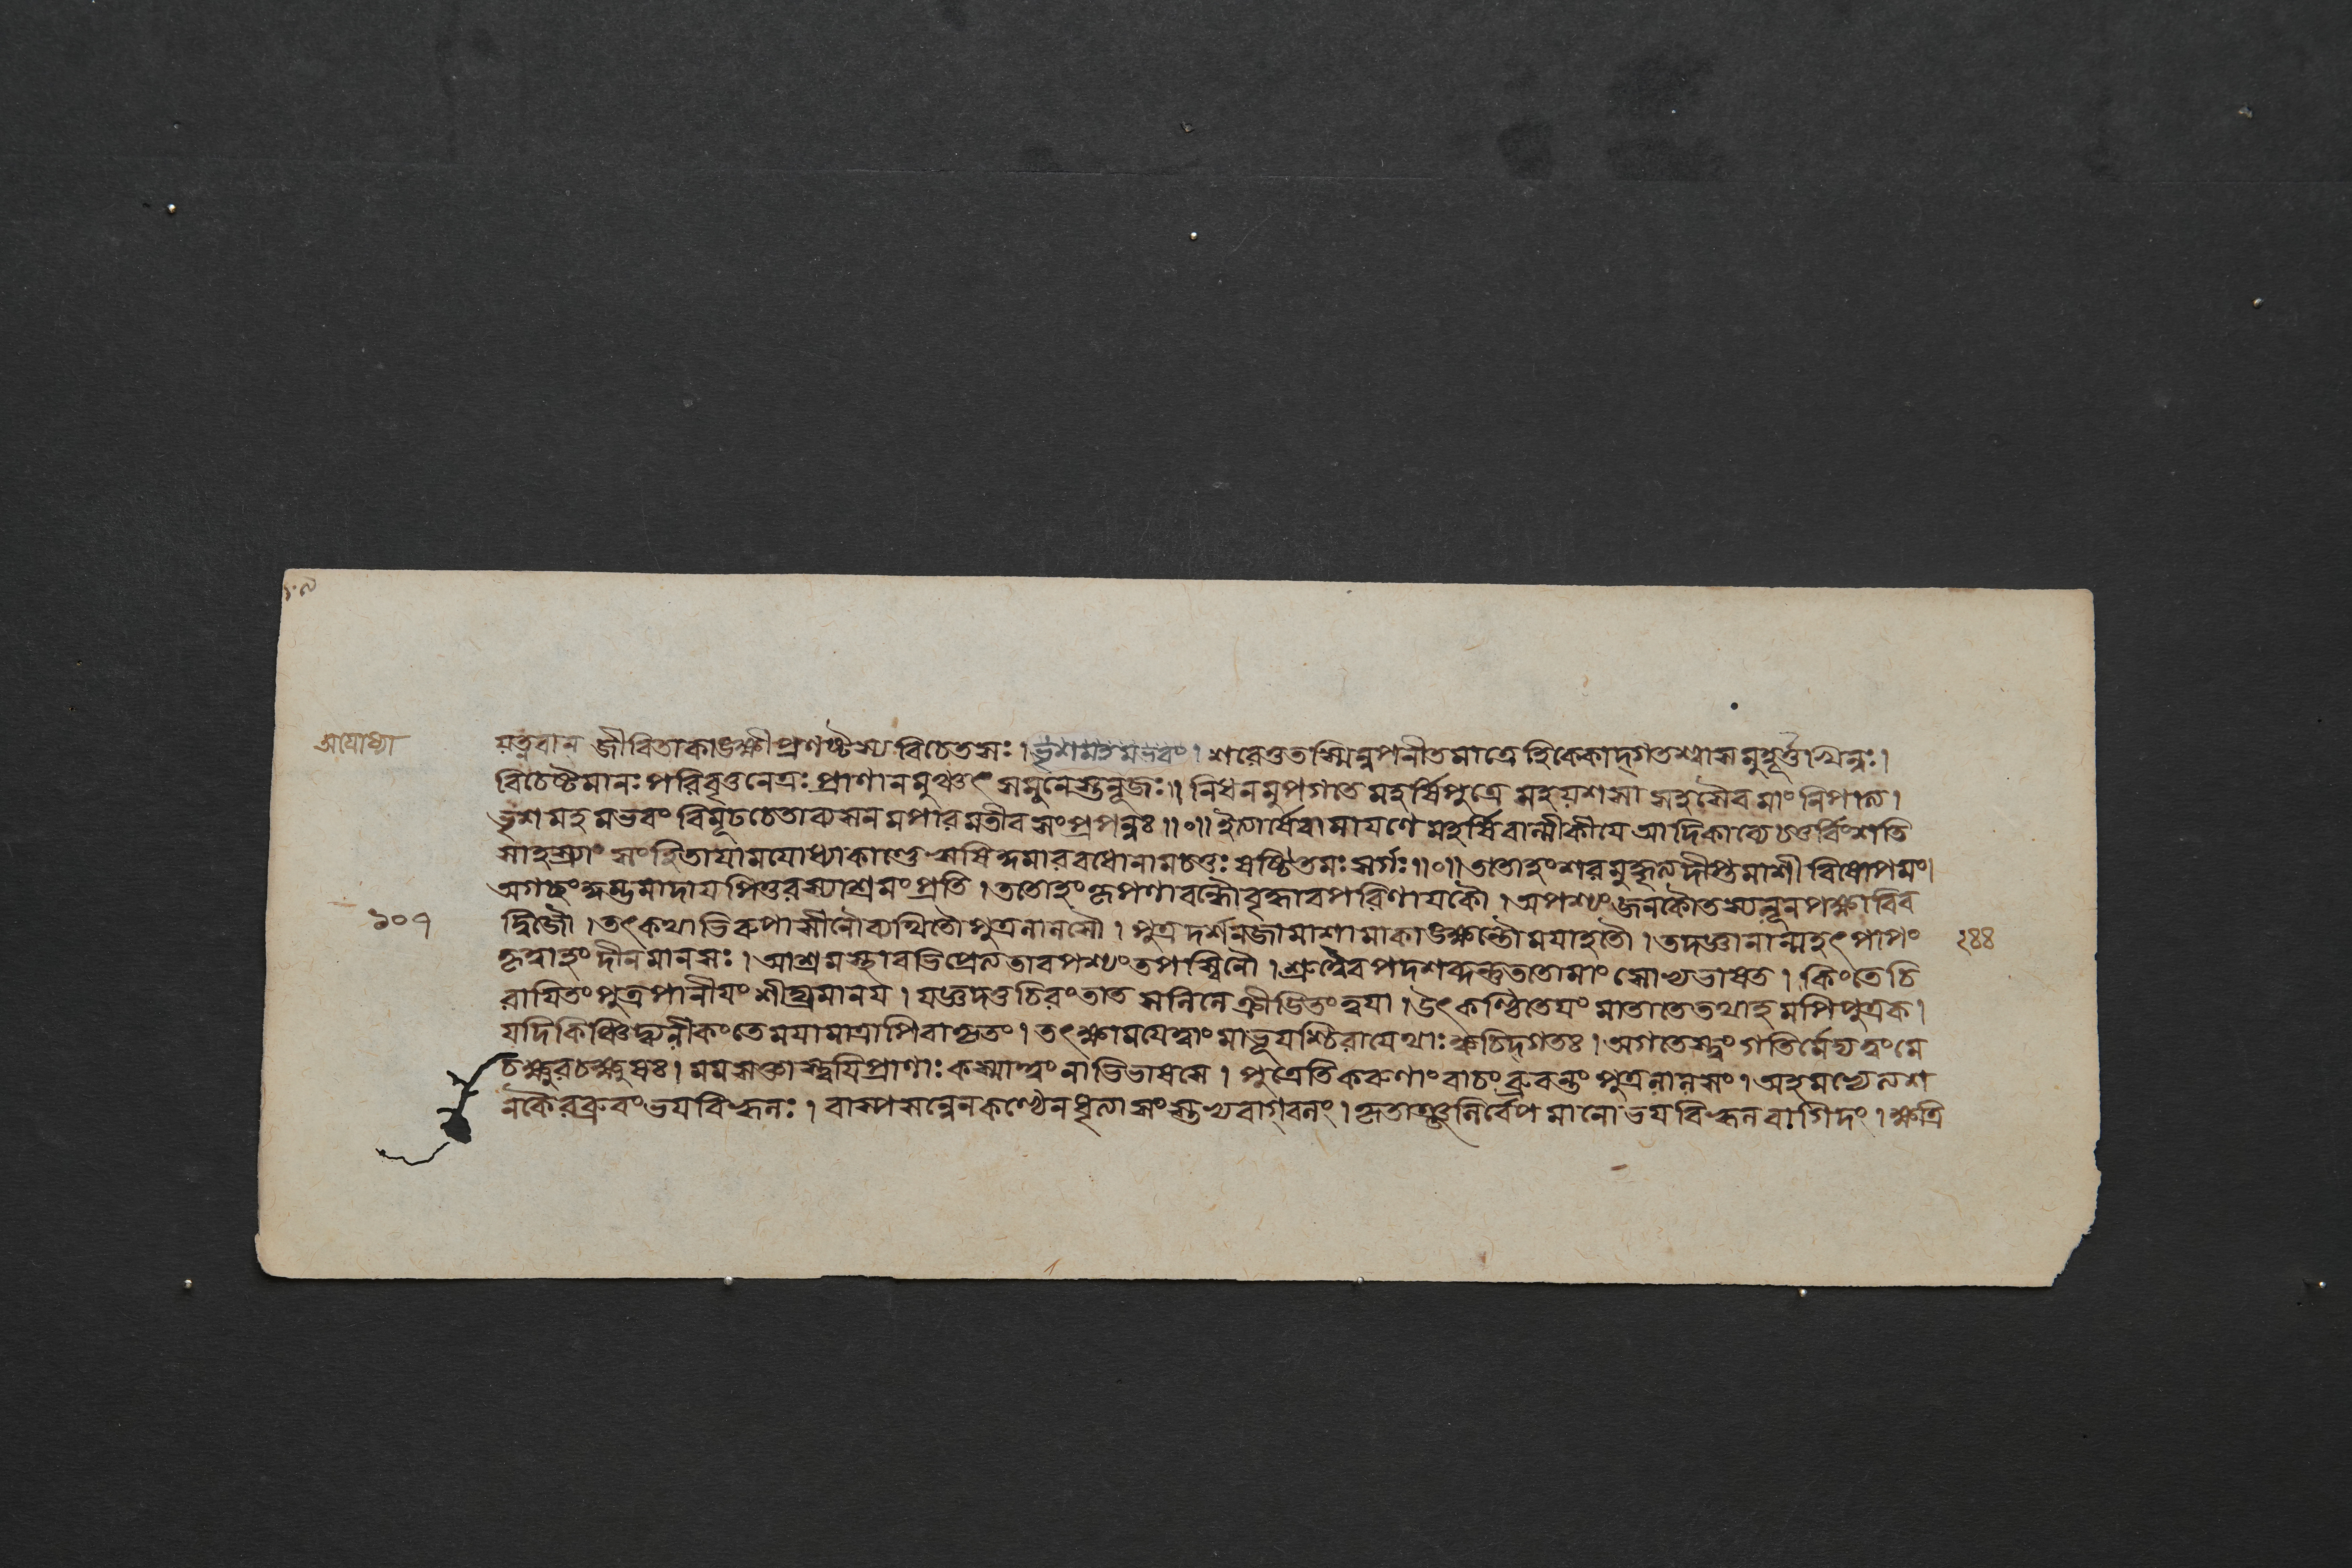 অযোধ্যা
যত্নবান জীবিতাকাঙ্ক্ষী প্রণষ্টস্য বিচেতসঃ। ভৃশমহমভবং। শরেত্তুতস্মিন্নপনীতমাত্রে হিক্ককোদ্গতশ্বাসমুহূর্ত্তখিন্নঃ।
বিচেষ্টমানঃ পরিবৃত্তনেত্রঃ প্রাণানমুঞ্চৎ সমুনেস্তনূজঃ॥ নিধনমুপগতে মহর্ষিপুত্রে মহযশসা সহসৈবমাং নিপাত্য।
ভৃশমহমভবং বিমূঢচেতাব্যসনমপারমতীবসংপ্রপন্নঃ॥০॥ ইত্যার্ষেরামাযণে মহর্ষিবাল্মীকীযে আদিকাব্যে চতুর্বিংশতি
সাহস্র্যাং সংহিতাযামযোধ্যাকাণ্ডে ঋষিকুমারবধোনামচতুঃষষ্টিতমঃ সর্গঃ॥০॥ ততোহংশরমুদ্ধৃত্যদীপ্তমাশীবিষোপমং।
অগচ্ছংকুম্ভমাদায পিতুরস্যাশ্রমং প্রতি। ততোহং কৃপণাবন্ধৌবৃদ্ধাবপরিণাযকৌ। অপশ্যং জনকৌতস্যলূনপক্ষাবিব
১০৭ দ্বিজৌ। তৎকথাভিরুপাসীনৌব্যথিতৌ পুত্রলালসৌ। পুত্রদর্শনজামাশামাকাঙ্ক্ষন্তৌ মযাহতৌ। তদজ্ঞানান্মহৎ পাপং २४४
কৃত্বাহং দীনমানসঃ। আশ্রমস্থাবভিপ্রেত্যতাবপশ্যং তপস্বিনৌ। শ্রুত্বৈবপদশব্দন্তুততোমাং সোভ্যভাষত। কিংতেচি
রাযিতং পুত্র পানীযং শীঘ্রমানয। যজ্ঞদত্তচিরংতাত সলিলে ক্রীডিতং ত্বযা। উৎকণ্ঠিতেযং মাতাতেতথাহমপিপুত্রক।
যদিকিঞ্চিদ্ব্যলীকং তে মযামাত্রাপিবাকৃতং। তৎক্ষামযেত্বাং মাভূযশ্চিরাযেথাঃ ক্বচিদ্গতঃ। অগতেস্ত্বং গতির্মেদ্যত্বংমে
চক্ষুরচক্ষুষঃ। মমসক্তাস্ত্বযিপ্রাণাঃ কস্মাত্ত্বং নাভিভাষসে। পুত্রেতিকরুণাং বাচং ব্রুবন্তং পুত্রলালসং। অহমভ্যেত্যশ
নকৈরব্রুবং ভযবিহ্বলঃ। বাস্পসন্নেনকণ্ঠেনধৃত্যা সংস্তভ্যবাগ্বলং। কৃতাঞ্জলির্বেপমানো ভযবিহ্বলবাগিদং। ক্ষত্রি